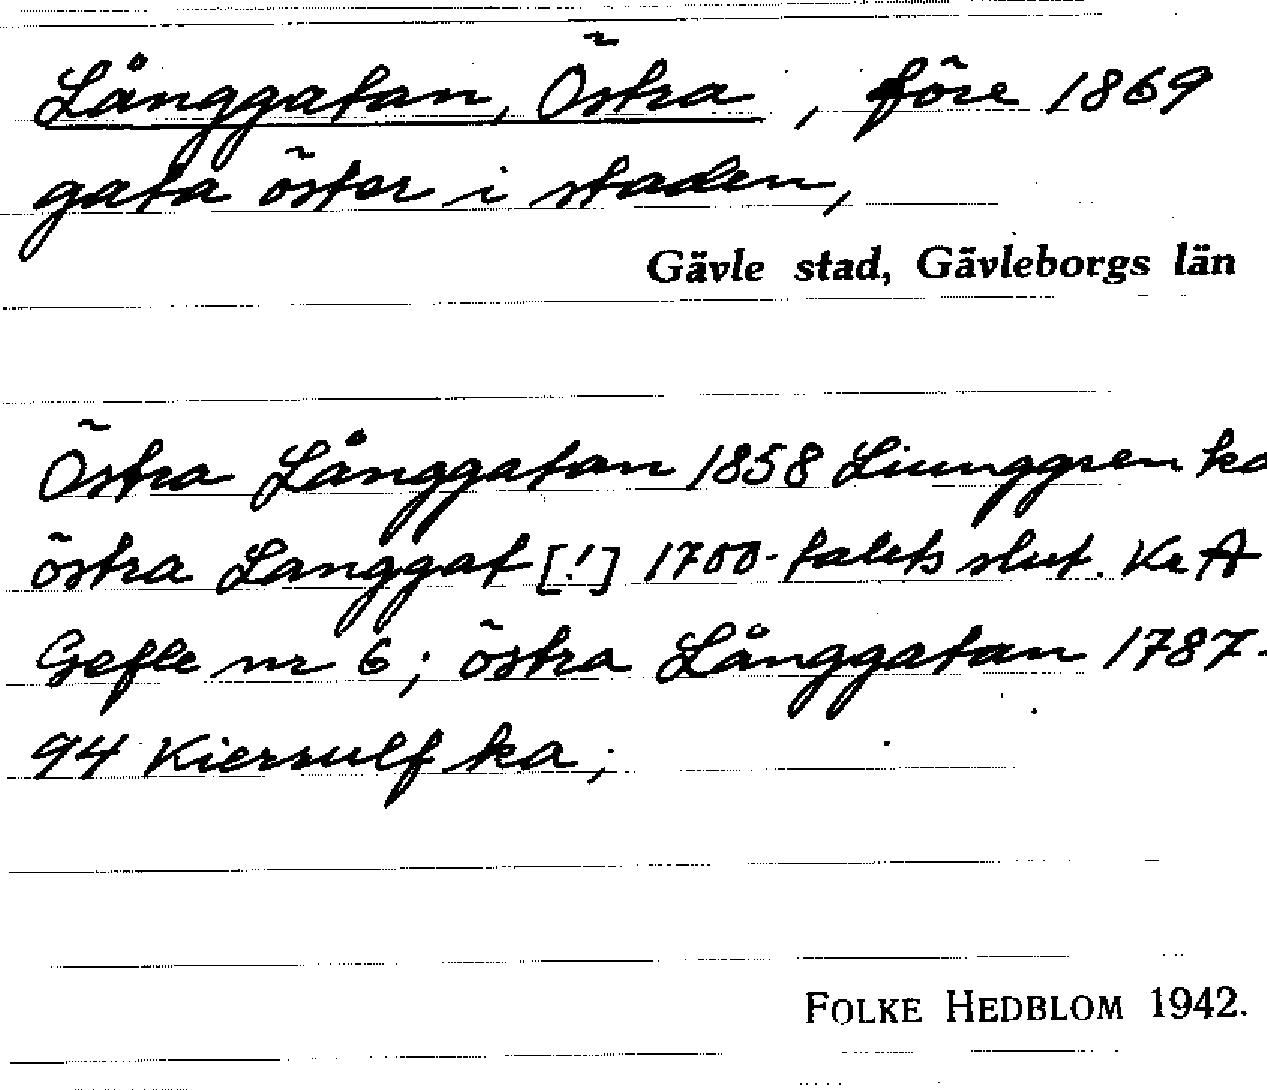 Långgatan, Östra, före 1869
gata öster i staden,
Gävle stad, Gävleborgs län
Östra Långgatan 1858 Liunggren ka
östra Langgat [!] 1700-talets slut. KrA
Gefle nr 6; östra Långgatan 1787-
94 Kiersulf ka;
FOLKE HEDBLOM 1942.